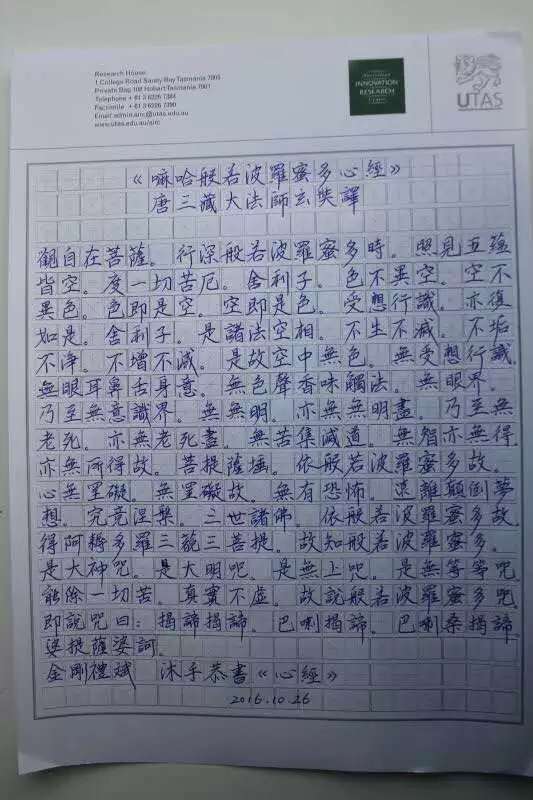 Research House
1 College Road Sandy Bay Tasmania 7005
Private Bag 108 Hobart Tasmania 7001
Telephone + 61 3 6226 7384
Facsimile + 61 3 6226 7390
Email admin.airc@utas.edu.au
www.utas.edu.au/airc
INNOVATION
RESEARCH
UTAS
《嘛哈般若波羅蜜多心經》
唐三藏大法師玄奘譯
觀自在菩薩。行深般若波羅蜜多時。照見五蘊
皆空。度一切苦厄。舍利子。色不異空。空不
異色。色即是空。空即是色。受想行識。亦復
如是。舍利子。是諸法空相。不生不滅。不垢
不淨。不增不減。是故空中無色。無受想行識
無眼耳鼻舌身意。無色聲香味觸法。無眼界。
乃至無意識界。無無明。亦無無明盡。乃至無
老死。亦無老死盡。無苦集滅道。無智亦無得
亦無所得故。菩提薩埵。依般若波羅蜜多故。
心無罣礙。無罣礙故。無有恐怖。遠離顛倒夢
想。究竟涅槃。三世諸佛。依般若波羅蜜多故
得阿耨多羅三藐三菩提。故知般若波羅蜜多。
是大神咒。是大明咒。是無上咒。是無等等咒
能除一切苦。真實不虛。故說般若波羅蜜多咒
即說咒曰：揭諦揭諦。巴喇揭諦。巴喇桑揭諦
婆提薩婆訶。
金剛禮斌 沐手恭書《心經》
2016.10.26